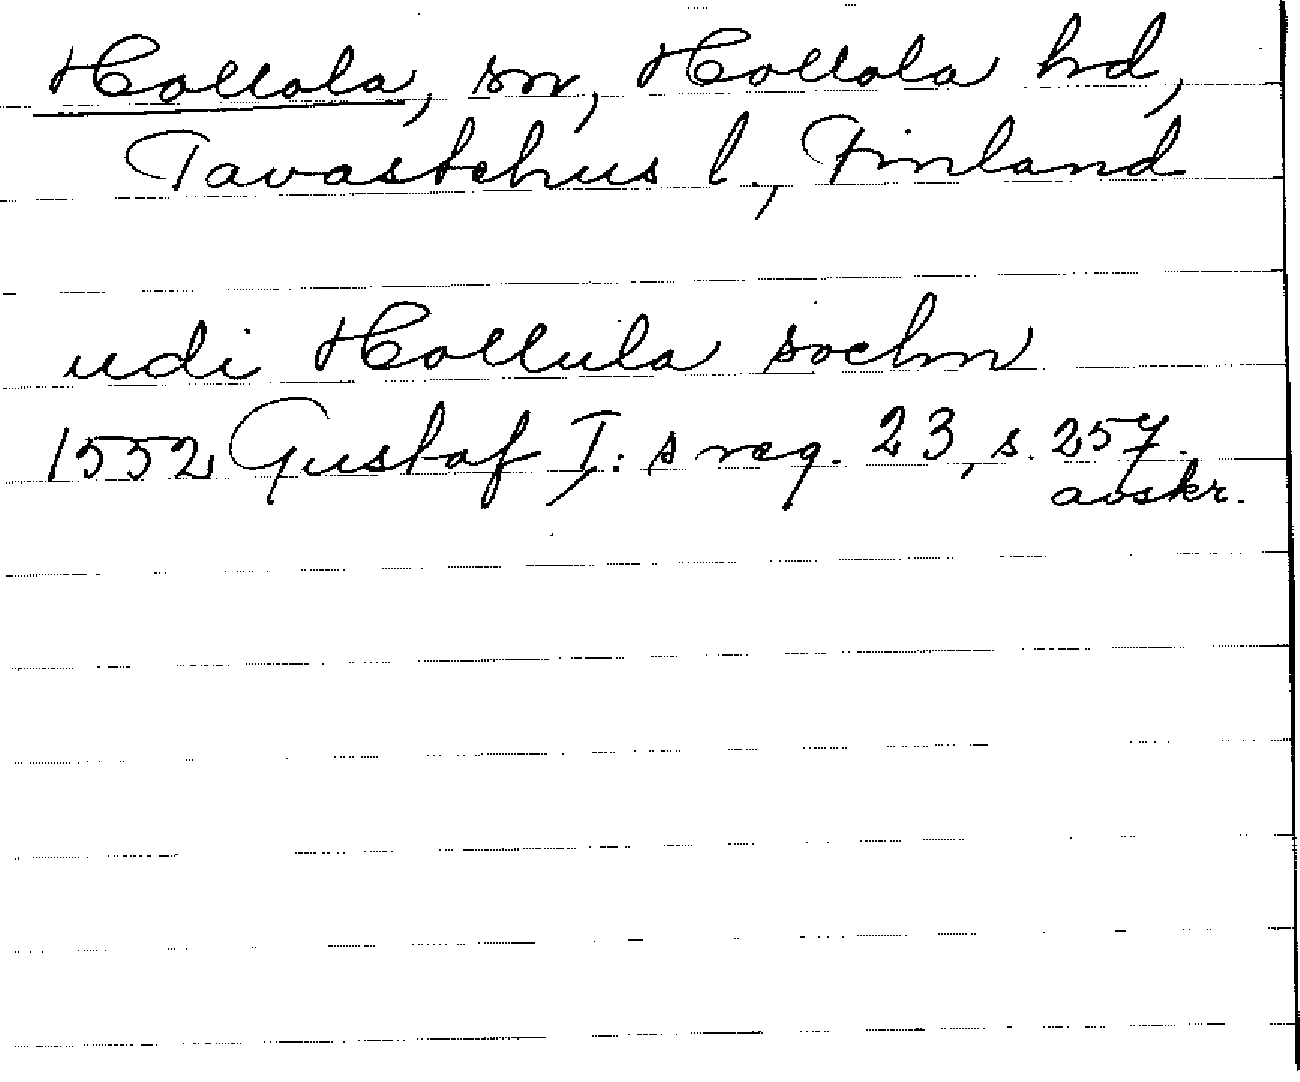 Hollola, sn, Hollola hd,
Tavastehus l., Finland
udi Hollula sochn
1552 Gustaf I:s reg. 23, s. 257.
avskr.